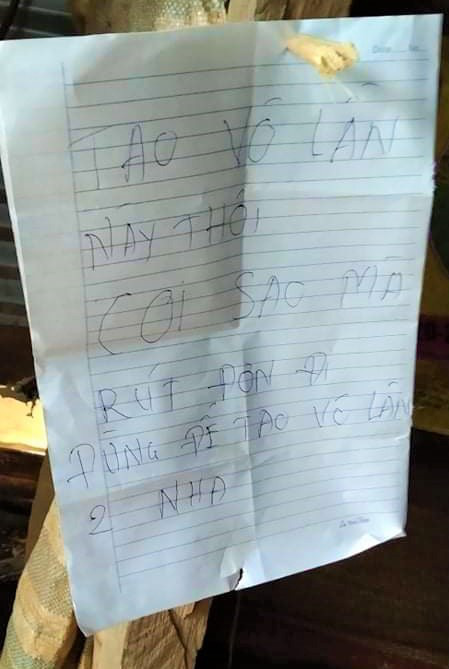 TAO VÔ LẦN
NÀY THÔI
COI SAO MÀ
RÚT ĐƠN ĐI
ĐỪNG ĐỂ TAO VÔ LẦN
2 NHA